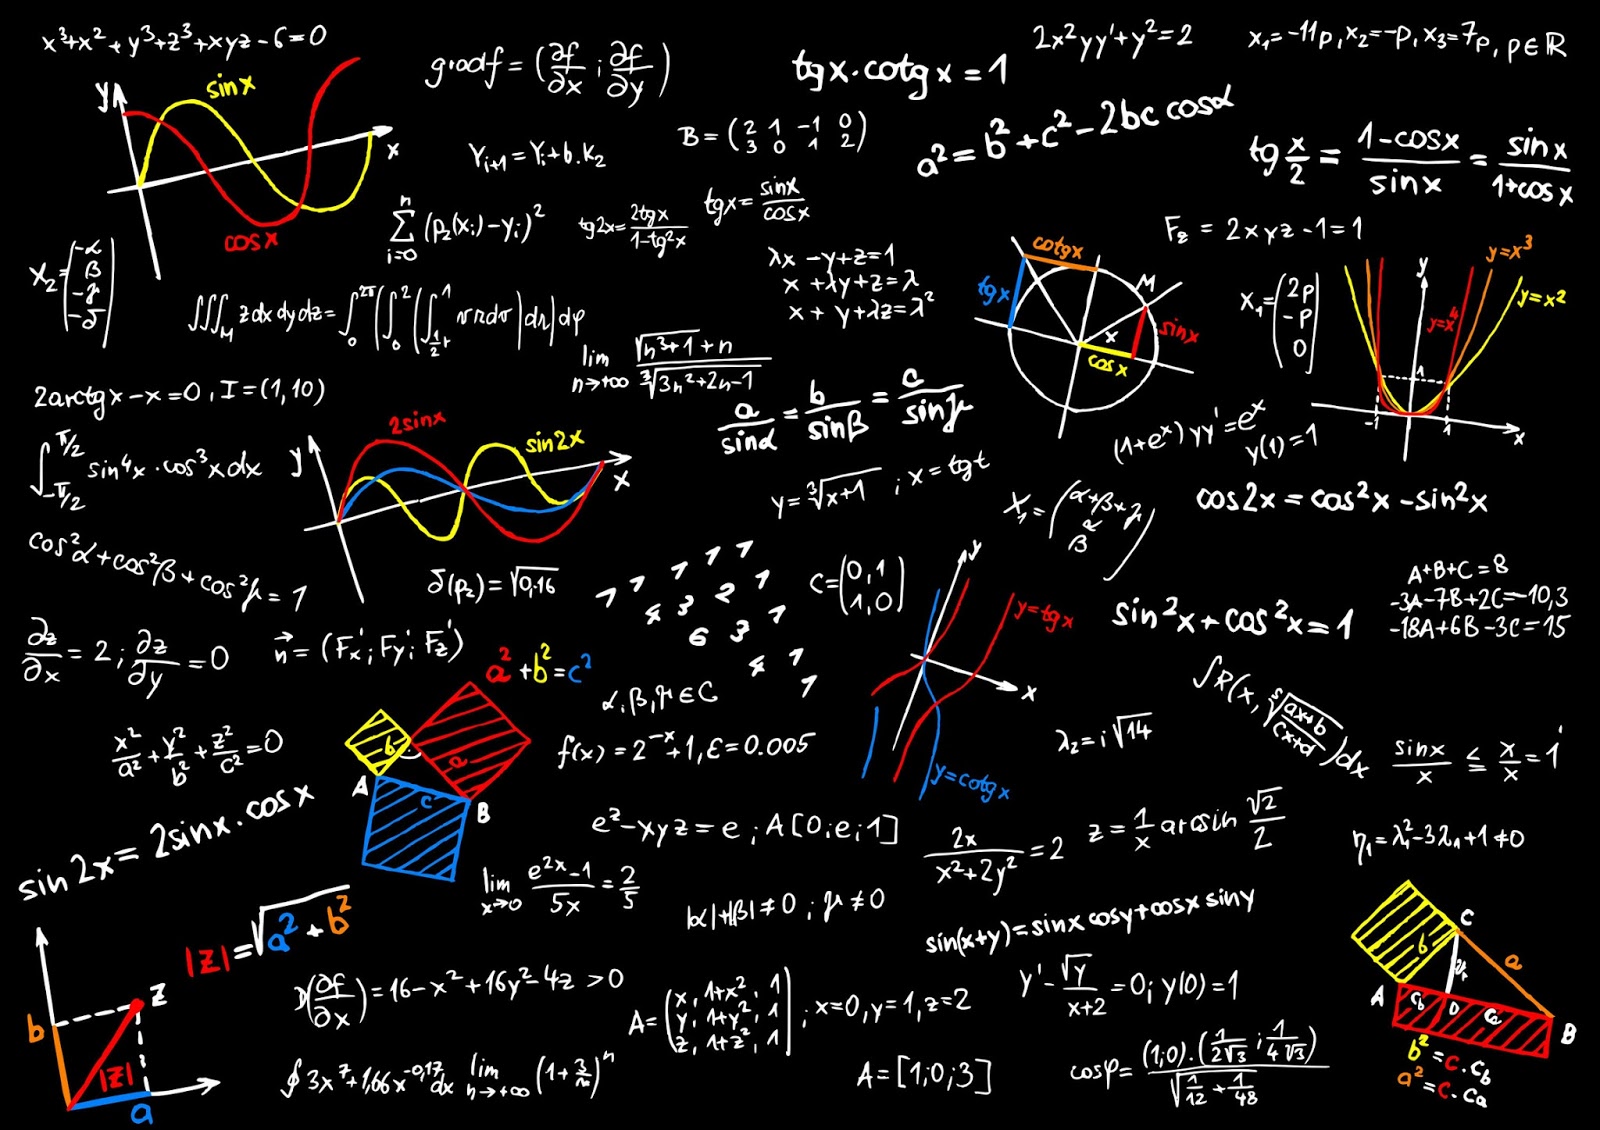 x³+x²+y³+z³+xyz-6=0
gradf = (∂f/∂x ; ∂f/∂y)
tgx·cotgx=1
2x²yy'+y²=2
x₁=-11p, x₂=-p, x₃=7p, p∈ℝ
y
sinx
x
cosx
Y_{i+1}=Y_i+b.K₂
B=(2 1 -1 0
3 0 1 2)
a²=b²+c²-2bc cosα
tg x/2 = (1-cosx)/sinx = sinx/(1+cosx)
∑_{i=0}^{n} (p₂(x_i)-y_i)²
tg2x=2tgx/(1-tg²x)
tgx=sinx/cosx
F_z = 2xyz-1=1
x₂=(-α
β
-γ
-δ)
λx-y+z=1
x+λy+z=λ
x+y+λz=λ²
cotgx
tgx
M
x
sinx
cosx
x₁=(2p
-p
0)
y
y=x³
y=x²
y=x⁴
1
-1
1
x
∭_M zdxdydz=∫₀^{2π}(∫₀²(∫_{½r}^1
lim_{n→+∞} (√(n³+1)+n)/∛(3n²+2n-1)
2arctgx-x=0, I=(1,10)
a/sinα = b/sinβ = c/sinγ
(1+eˣ)yy'=eˣ
y(1)=1
∫_{-π/2}^{π/2} sin⁴x·cos³xdx
y
2sinx
sin2x
x
y=∛(x+1) ; x=tgt
X₁=(α+β+γ
α
β)
cos2x=cos²x-sin²x
cos²α+cos²β+cos²γ=1
δ(p₂)=√0,16
1 1 1 1 1
4 3 2 1
6 3 1
4 1
1
C=(0,1
1,0)
y
y=tgx
x
y=cotgx
sin²x+cos²x=1
A+B+C=8
-3A-7B+2C=-10,3
-18A+6B-3C=15
∂z/∂x=2; ∂z/∂y=0
n⃗=(Fx'; Fy'; Fz')
a²+b²=c²
b
a
A
c
B
α,β,γ∈C
∫R(x, ⁵√((ax+b)/(cx+d)))dx
x²/a²+y²/b²+z²/c²=0
f(x)=2⁻ˣ+1, ε=0.005
λ₂=i√14
sinx/x ≤ x/x=1
sin2x=2sinx·cosx
e^z-xyz=e; A[0;e;1]
2x/(x²+2y²)=2
z=1/x arcsin √2/2
η₁=λ₁²-3λ₁+1≠0
lim_{x→0} (e^{2x}-1)/5x=2/5
|α|+|β|≠0; γ≠0
sin(x+y)=sinxcosy+cosxsiny
|z|=√(a²+b²)
z
b
|z|
a
(∂f/∂x)=16-x²+16y²-4z>0
A=(x, 1+x², 1
y, 1+y², 1
z, 1+z², 1); x=0, y=1, z=2
y'-√y/(x+2)=0; y(0)=1
C
b
a
A
c_b
D
c_a
B
b²=c.c_b
a²=c.c_a
∮3x⁷+1,66x^{-0,17}dx
lim_{n→+∞}(1+3/n)ⁿ
A=[1;0;3]
cosφ=((1;0).(1/(2√3); 1/(4√3)))/√(1/12+1/48)